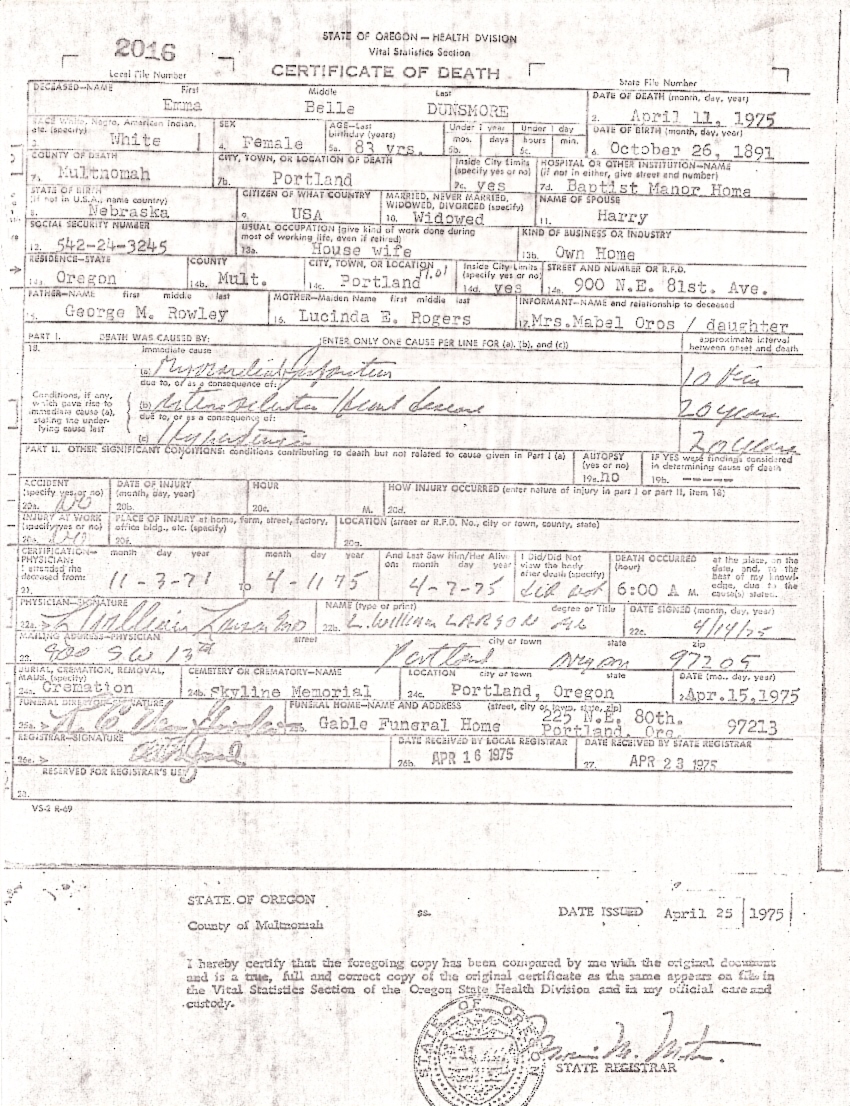 STATE OF OREGON — HEALTH DIVISION
2016 Vital Statistics Section
Local File Number CERTIFICATE OF DEATH State File Number
DECEASED—NAME First Middle Last DATE OF DEATH (month, day, year)
Emma Belle DUNSMORE 2. April 11, 1975
RACE White, Negro, American Indian, etc. (specify) SEX AGE—Last birthday (years) Under 1 year Under 1 day DATE OF BIRTH (month, day, year)
3. White 4. Female 5a. 83 yrs. mos. days hours min. 5b. 5c. 6. October 26, 1891
COUNTY OF DEATH CITY, TOWN, OR LOCATION OF DEATH Inside City Limits (specify yes or no) HOSPITAL OR OTHER INSTITUTION—NAME (if not in either, give street and number)
7a. Multnomah 7b. Portland 7c. yes 7d. Baptist Manor Home
STATE OF BIRTH (if not in U.S.A., name country) CITIZEN OF WHAT COUNTRY MARRIED, NEVER MARRIED, WIDOWED, DIVORCED (specify) NAME OF SPOUSE
8. Nebraska 9. USA 10. Widowed 11. Harry
SOCIAL SECURITY NUMBER USUAL OCCUPATION (give kind of work done during most of working life, even if retired) KIND OF BUSINESS OR INDUSTRY
12. 542-24-3245 13a. House wife 13b. Own Home
RESIDENCE—STATE COUNTY CITY, TOWN, OR LOCATION Inside City Limits (specify yes or no) STREET AND NUMBER OR R.F.D.
14a. Oregon 14b. Mult. 14c. Portland 14d. yes 14e. 900 N.E. 81st. Ave.
FATHER—NAME first middle last MOTHER—Maiden Name first middle last INFORMANT—NAME and relationship to deceased
15. George M. Rowley 16. Lucinda E. Rogers 17. Mrs.Mabel Oros / daughter
PART I. DEATH WAS CAUSED BY: (ENTER ONLY ONE CAUSE PER LINE FOR (a), (b), and (c)) approximate interval between onset and death
18. immediate cause
(a) Myocardial Infarction 10 Min
due to, or as a consequence of:
Conditions, if any, which gave rise to immediate cause (a), stating the underlying cause last
(b) Heart disease 20 years
due to, or as a consequence of:
(c) Hypertension 20 years
PART II. OTHER SIGNIFICANT CONDITIONS: conditions contributing to death but not related to cause given in Part I (a) AUTOPSY (yes or no) IF YES were findings considered in determining cause of death
19a. no 19b. -----
ACCIDENT (specify yes or no) DATE OF INJURY (month, day, year) HOUR HOW INJURY OCCURRED (enter nature of injury in part I or part II, item 18)
20a. No 20b. 20c. M. 20d.
INJURY AT WORK (specify yes or no) PLACE OF INJURY at home, farm, street, factory, office bldg., etc. (specify) LOCATION (street or R.F.D. No., city or town, county, state)
20e. No 20f. 20g.
CERTIFICATION—PHYSICIAN: I attended the deceased from: month day year month day year And Last Saw Him/Her Alive on: month day year I Did/Did Not view the body after death (specify) DEATH OCCURRED (hour) at the place, on the date, and, to the best of my knowledge, due to the cause(s) stated.
21. 11-3-71 to 4-11 75 4-7-75 did not 6:00 A M.
PHYSICIAN—SIGNATURE NAME (type or print) degree or Title DATE SIGNED (month, day, year)
22a. L William Larson MD 22b. L. William LARSON MD 22c. 4/14/75
MAILING ADDRESS—PHYSICIAN street city or town state zip
23. 900 SW 13th Portland Oregon 97205
BURIAL, CREMATION, REMOVAL, MAUS. (specify) CEMETERY OR CREMATORY—NAME LOCATION city or town state DATE (mo., day, year)
24a. Cremation 24b. Skyline Memorial 24c. Portland, Oregon Apr.15,1975
FUNERAL DIRECTOR—SIGNATURE FUNERAL HOME—NAME AND ADDRESS (street, city or town, state, zip)
25a. Gable Funeral Home 225 N.E. 80th. Portland, Ore. 97213
REGISTRAR—SIGNATURE DATE RECEIVED BY LOCAL REGISTRAR DATE RECEIVED BY STATE REGISTRAR
26a. 26b. APR 16 1975 27. APR 23 1975
RESERVED FOR REGISTRAR'S USE
28.
VS-2 R-69
STATE OF OREGON
County of Multnomah ss. DATE ISSUED April 25 1975
I hereby certify that the foregoing copy has been compared by me with the original document
and is a true, full and correct copy of the original certificate as the same appears on file in
the Vital Statistics Section of the Oregon State Health Division and in my official care and
custody.
STATE OF OREGON
STATE REGISTRAR